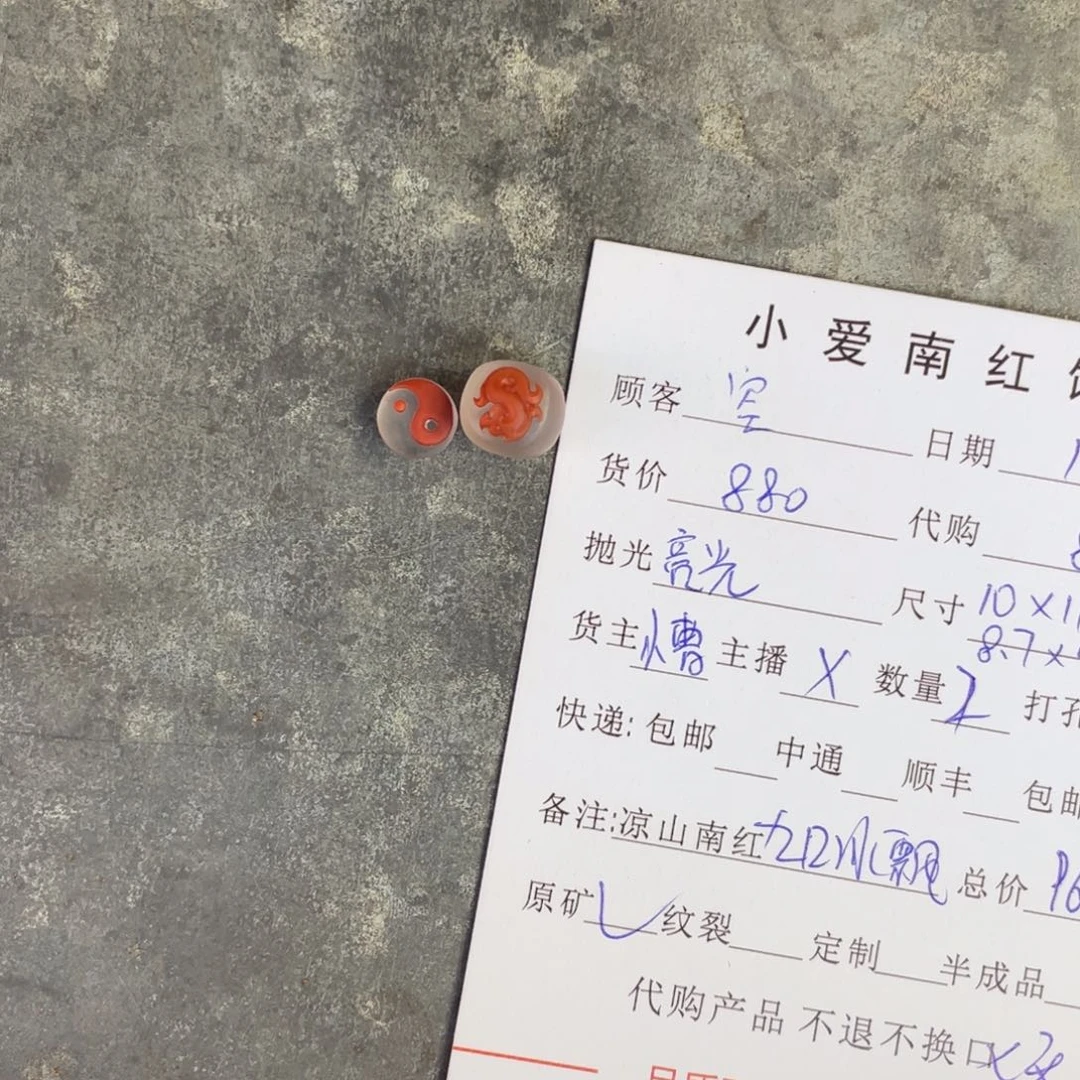 小爱南红
顾客 日期
货价 880 代购
抛光 亮光 尺寸 10×11
8.7×
货主 小曹 主播 X 数量 2 打孔
快递: 包邮 中通 顺丰 包邮
备注: 凉山南红 九口冰飘 总价
原矿 纹裂 定制 半成品
代购产品 不退不换